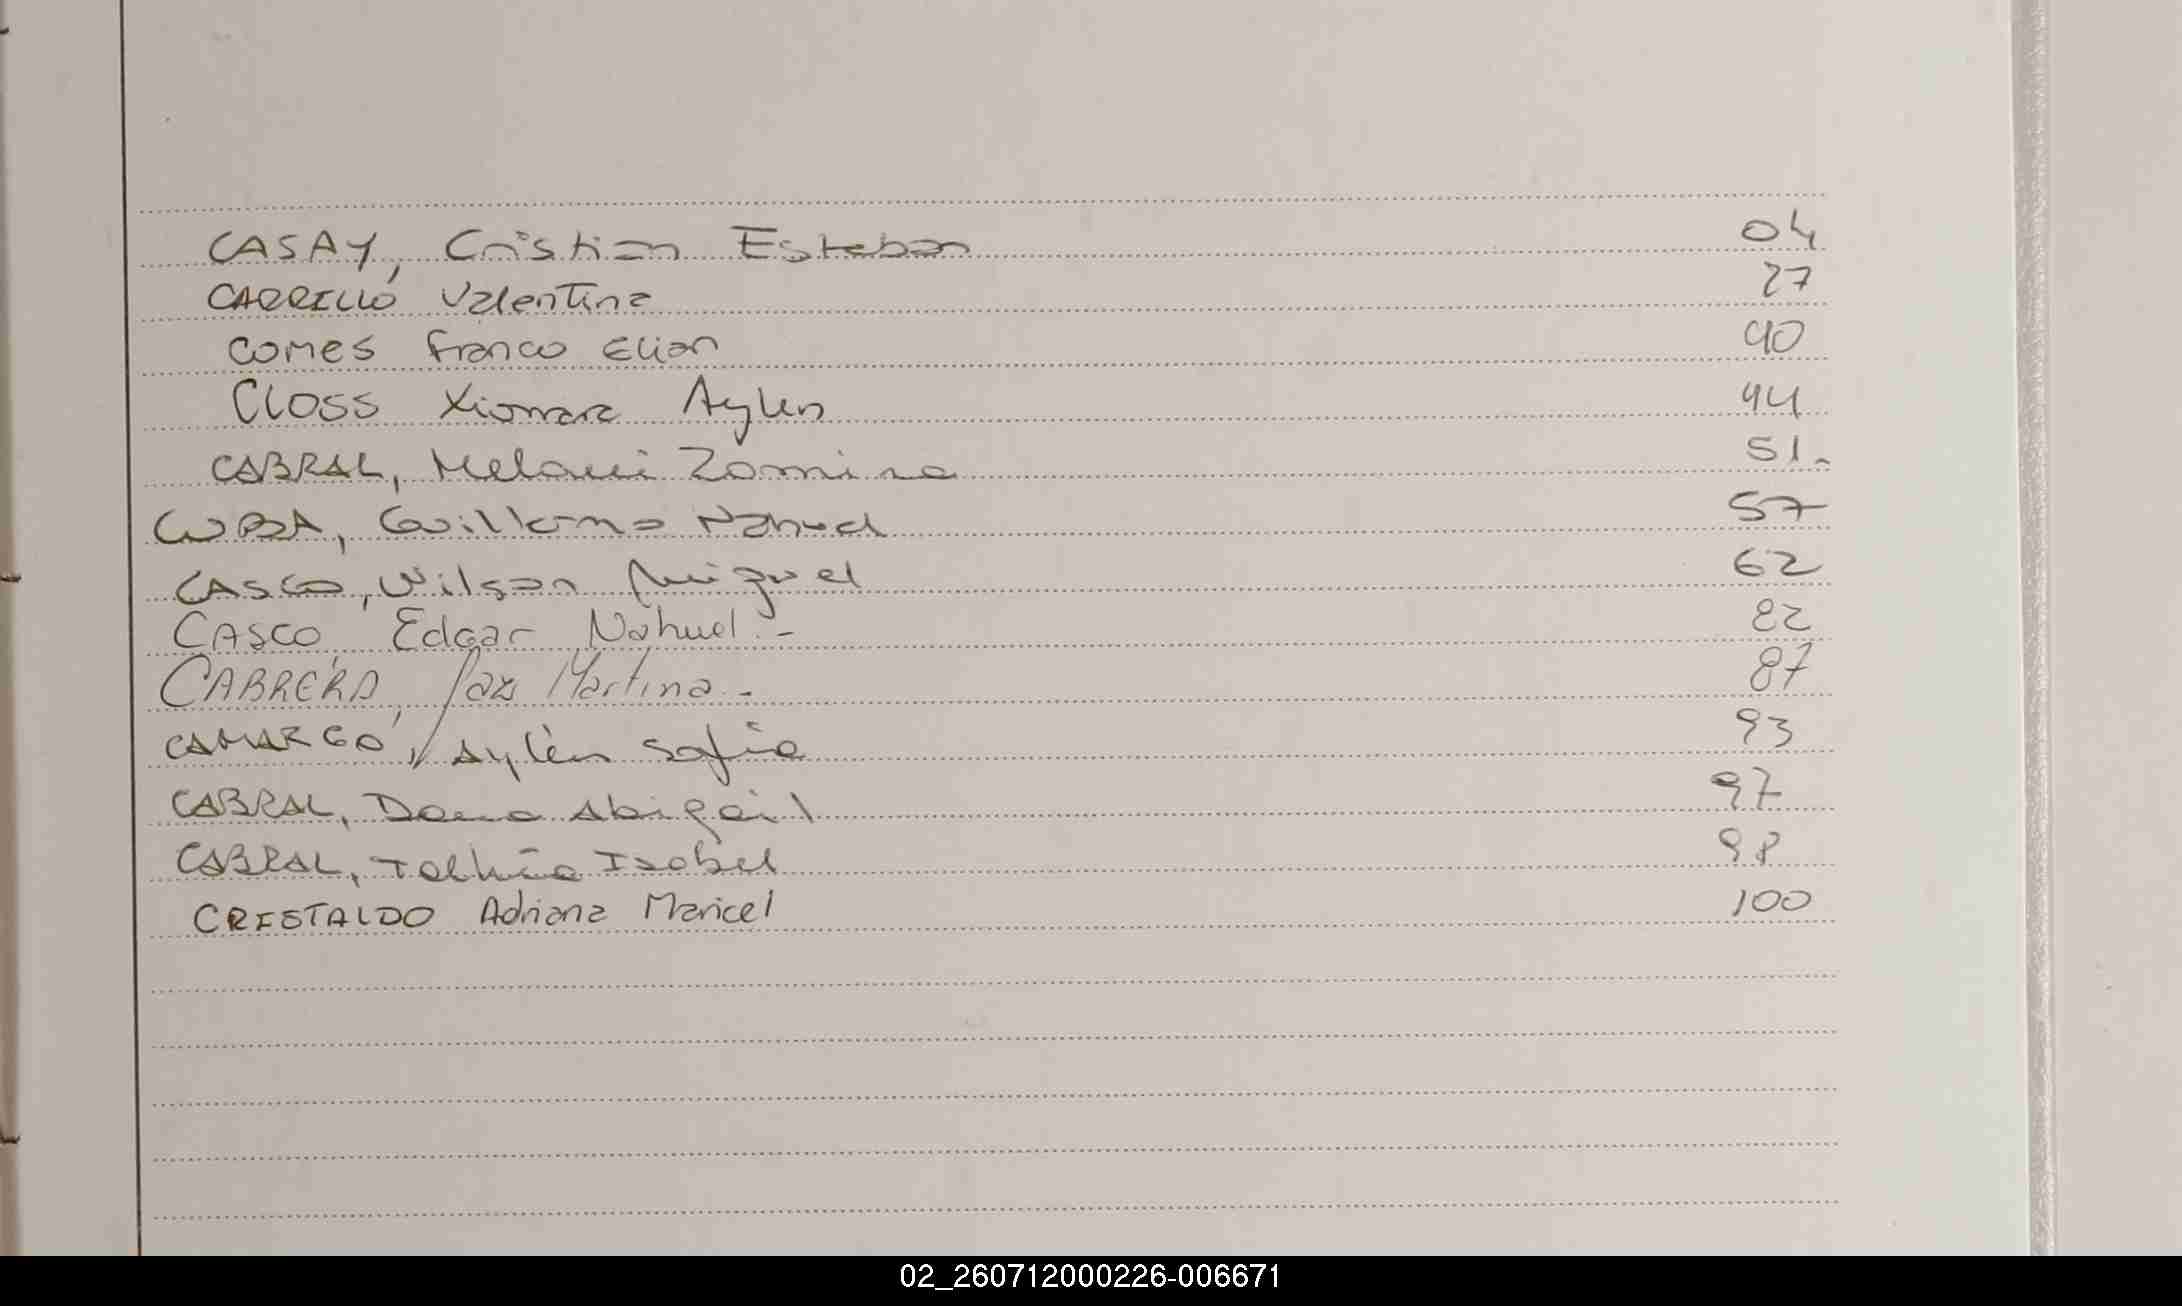 CASAY, Cristian Esteban 04
CARRILLO Valentina 27
COMES Franco Elian 40
CLOSS Xiomara Aylen 44
CABRAL, Melani Zamira 51.
CUBBA, Guillermo Nahuel 57
CASCO, Wilson Miguel 62
CASCO, Edgar Nahuel.- 82
CABRERA, Paz Martina.- 87
CAMARGO, Aylén Sofía 93
CABRAL, Dana Abigail 97
CABRAL, Isabel 98
CRISTALDO Adriana Maricel 100
02_260712000226-006671